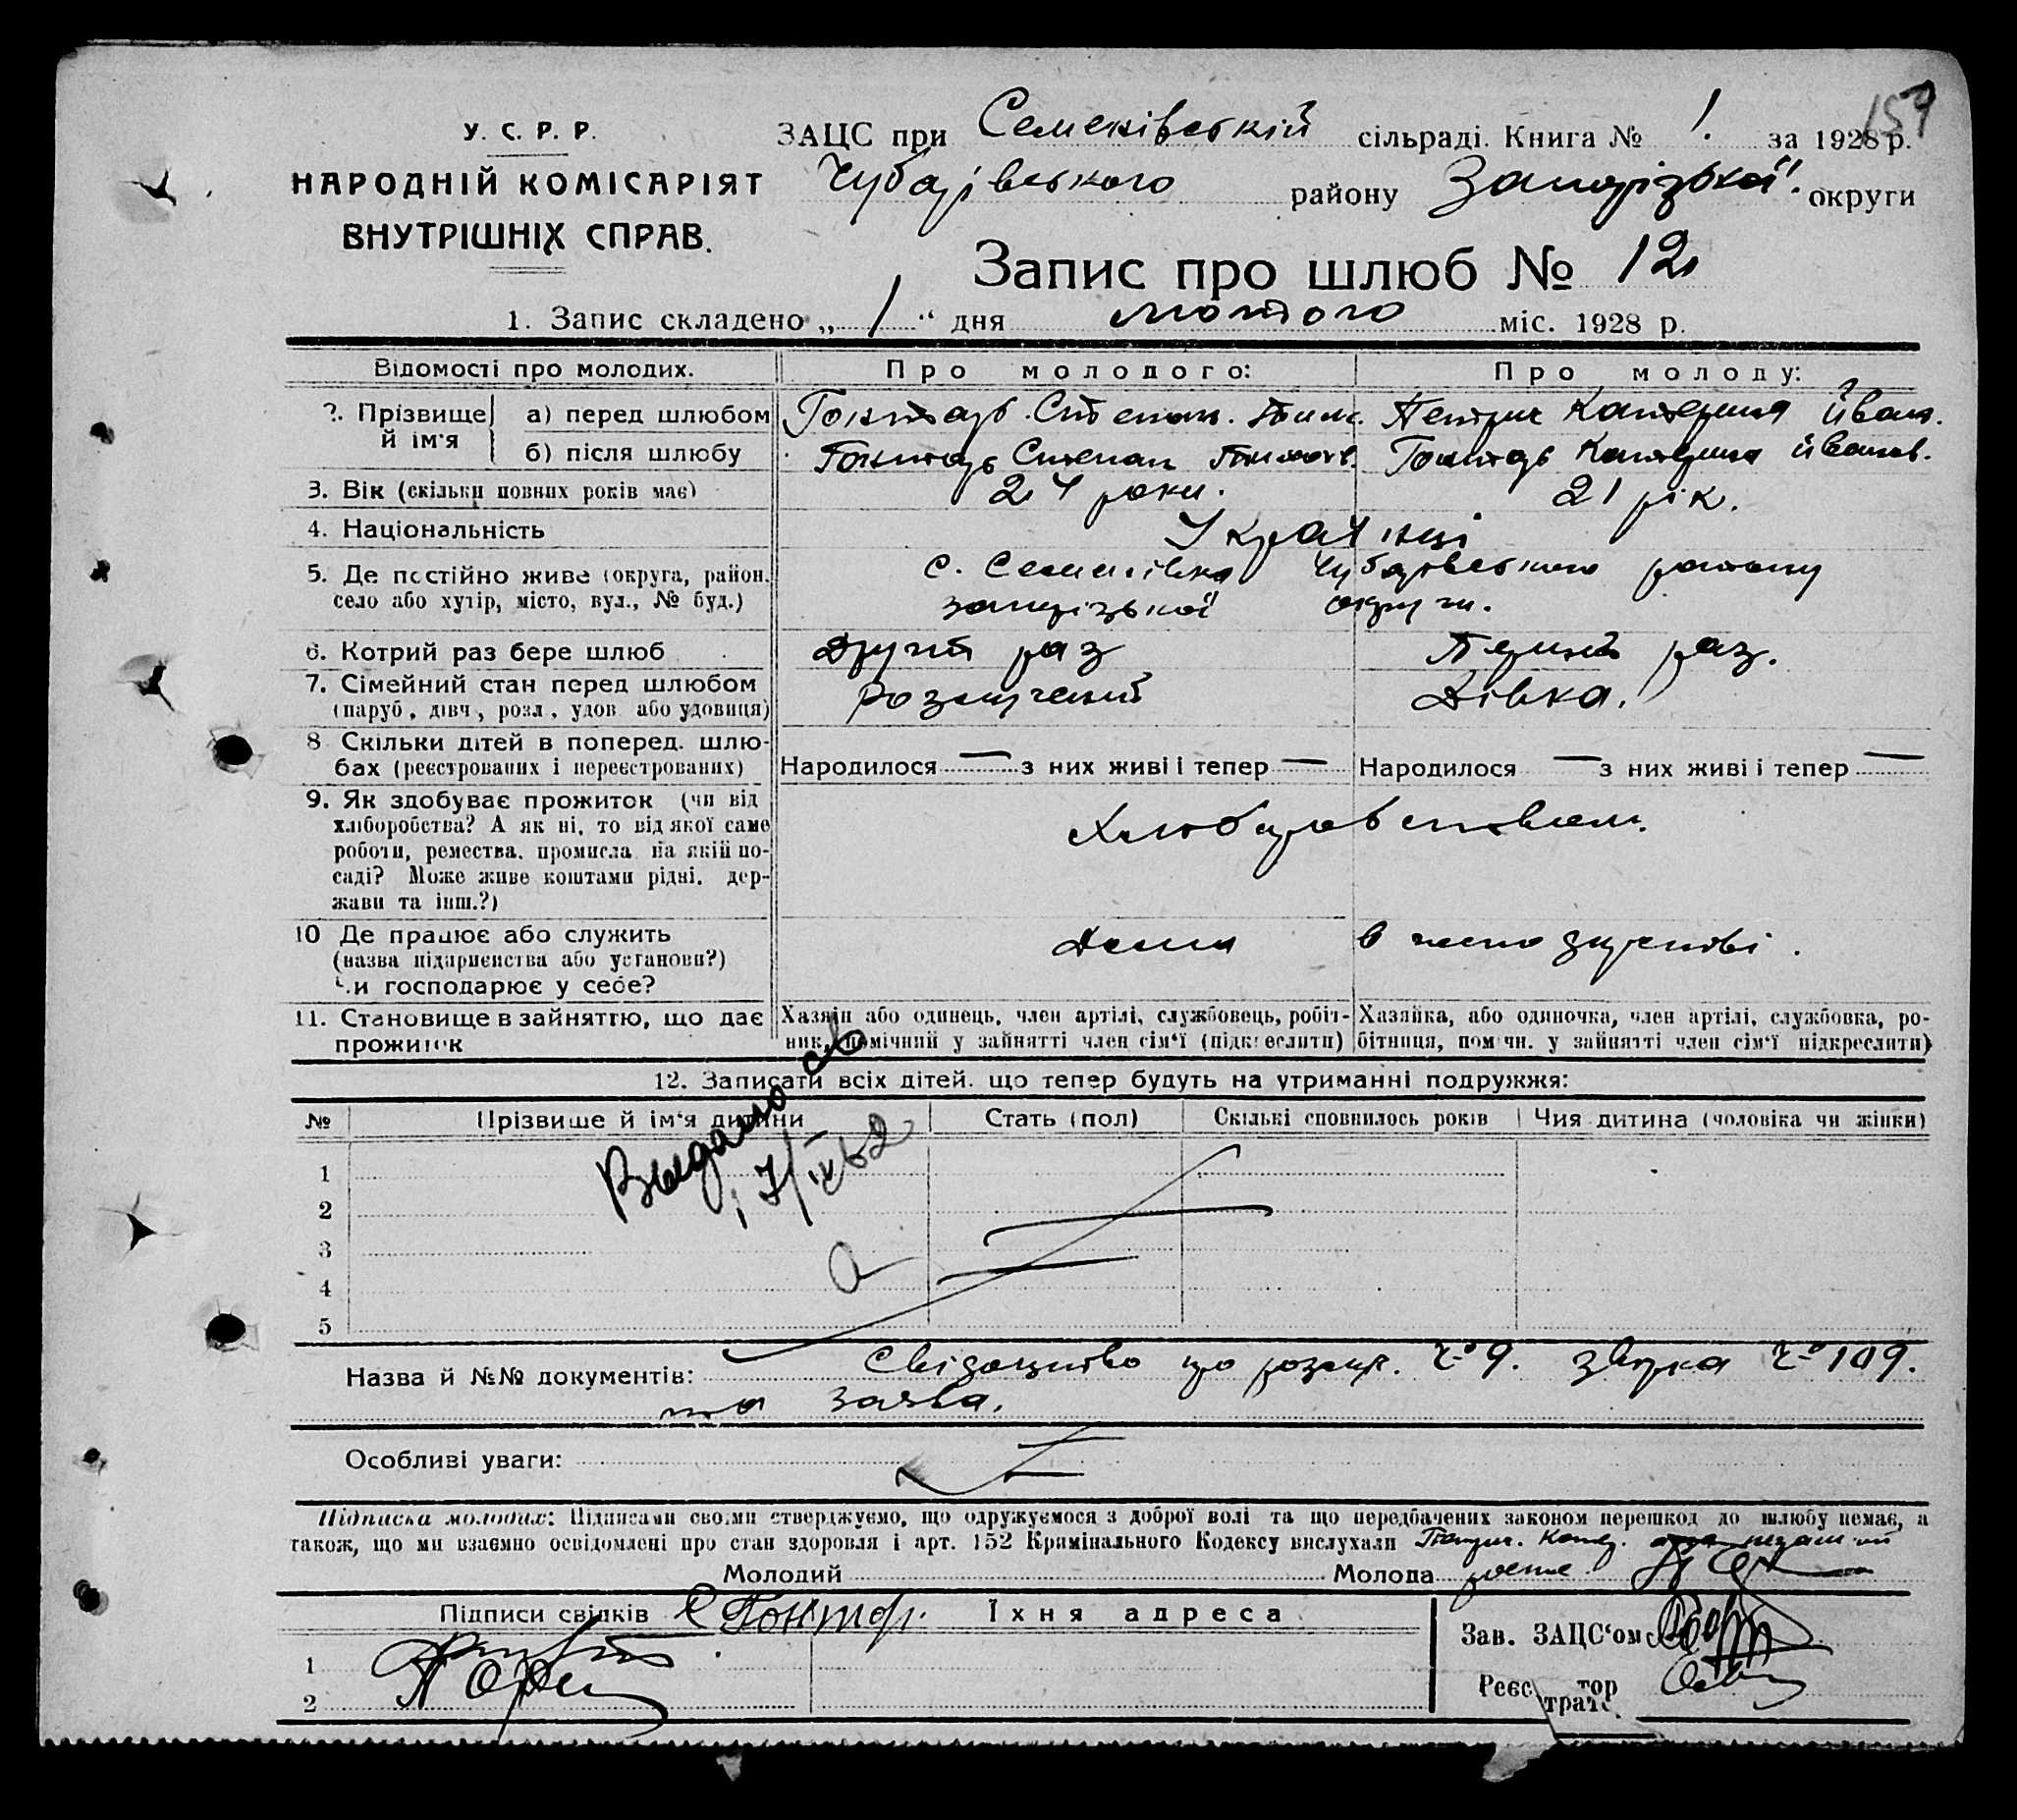 157
У. С. Р. Р.
НАРОДНІЙ КОМІСАРІЯТ
ВНУТРІШНІХ СПРАВ.
ЗАЦС при Семенівській сільраді. Книга № 1. за 1928 р.
Чубарівського району Запорізької округи
Запис про шлюб № 12
1. Запис складено „ 1 “ дня лютого міс. 1928 р.
Відомості про молодих. Про молодого: Про молоду:
2. Прізвище й ім'я а) перед шлюбом Гонтарь Степан Тим. Петрик Катерина Йван.
б) після шлюбу Гонтарь Степан Тимов. Гонтарь Катерина Йванов.
3. Вік (скільки повних років має) 24 роки. 21 рік.
4. Національність Українці
5. Де постійно живе (округа, район, с. Семенівка Чубарівського району
село або хутір, місто, вул., № буд.) запорізької округи.
6. Котрий раз бере шлюб Другий раз Перший раз.
7. Сімейний стан перед шлюбом Розлучений Дівка.
(паруб, дівч, розл, удов або удовиця)
8 Скільки дітей в поперед. шлю-
бах (реєстрованих і нереєстрованих) Народилося — з них живі і тепер — Народилося — з них живі і тепер —
9. Як здобуває прожиток (чи від
хліборобства? А як ні, то від якої саме
роботи, ремества, промисла на якій по-
саді? Може живе коштами рідні, дер-
жави та інш.?)
10 Де працює або служить в
(назва підприємства або установи?)
Чи господарює у себе?
11. Становище в зайняттю, що дає Хазяїн або одинець, член артілі, службовець, робіт- Хазяйка, або одиночка, член артілі, службовка, ро-
прожиток ник, помічний у зайнятті член сім'ї (підкреслити) бітниця, помічн. у зайнятті член сім'ї підкреслити)
12. Записати всіх дітей, що тепер будуть на утриманні подружжя:
№ Прізвище й ім'я дитини Стать (пол) Скількі сповнилось років Чия дитина (чоловіка чи жінки)
Выдано св
17/IV 62
1
2
3
4
5
Назва й №№ документів: Свідоцтво про розлуч. № 9. звірка № 109.
та заява.
Особливі уваги:
Підписка молодих: Підписами своїми стверджуємо, що одружуємося з доброї волі та що передбачених законом перешкод до шлюбу немає, а
також, що ми взаємно освідомлені про стан здоровля і арт. 152 Кримінального Кодексу вислухали
Молодий Молода
Підписи свідків С Гонтар. Їхня адреса
1
2
Зав. ЗАЦС'ом
Реєстратор